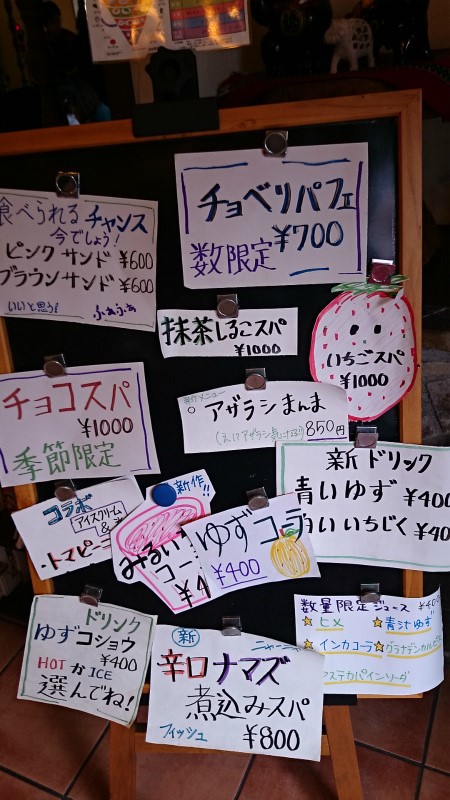 食べられるチャンス
今でしょう！
ピンクサンド ¥600
ブラウンサンド ¥600
いいと思う！
ふぁふぁ
チョベリパフェ
¥700
数限定
抹茶しるこスパ
¥1000
いちごスパ
¥1000
チョコスパ
¥1000
季節限定
新メニュー
アザラシまんま
850円
新ドリック
青いゆず ¥400
白いいちじく ¥40
コラボ
アイスクリーム
&
トマピー
新作!!
みるい
コー
¥4
ゆずコーラ
¥400
ドリンク
ゆずコショウ
¥400
HOT か ICE
選んでね！
新
辛口ナマズ
煮込みスパ
フィッシュ
¥800
数量限定ジュース ¥40
☆ヒメ ☆青汁ゆず
☆インカコーラ ☆グラナデンカルピ
アステカパインソーダ